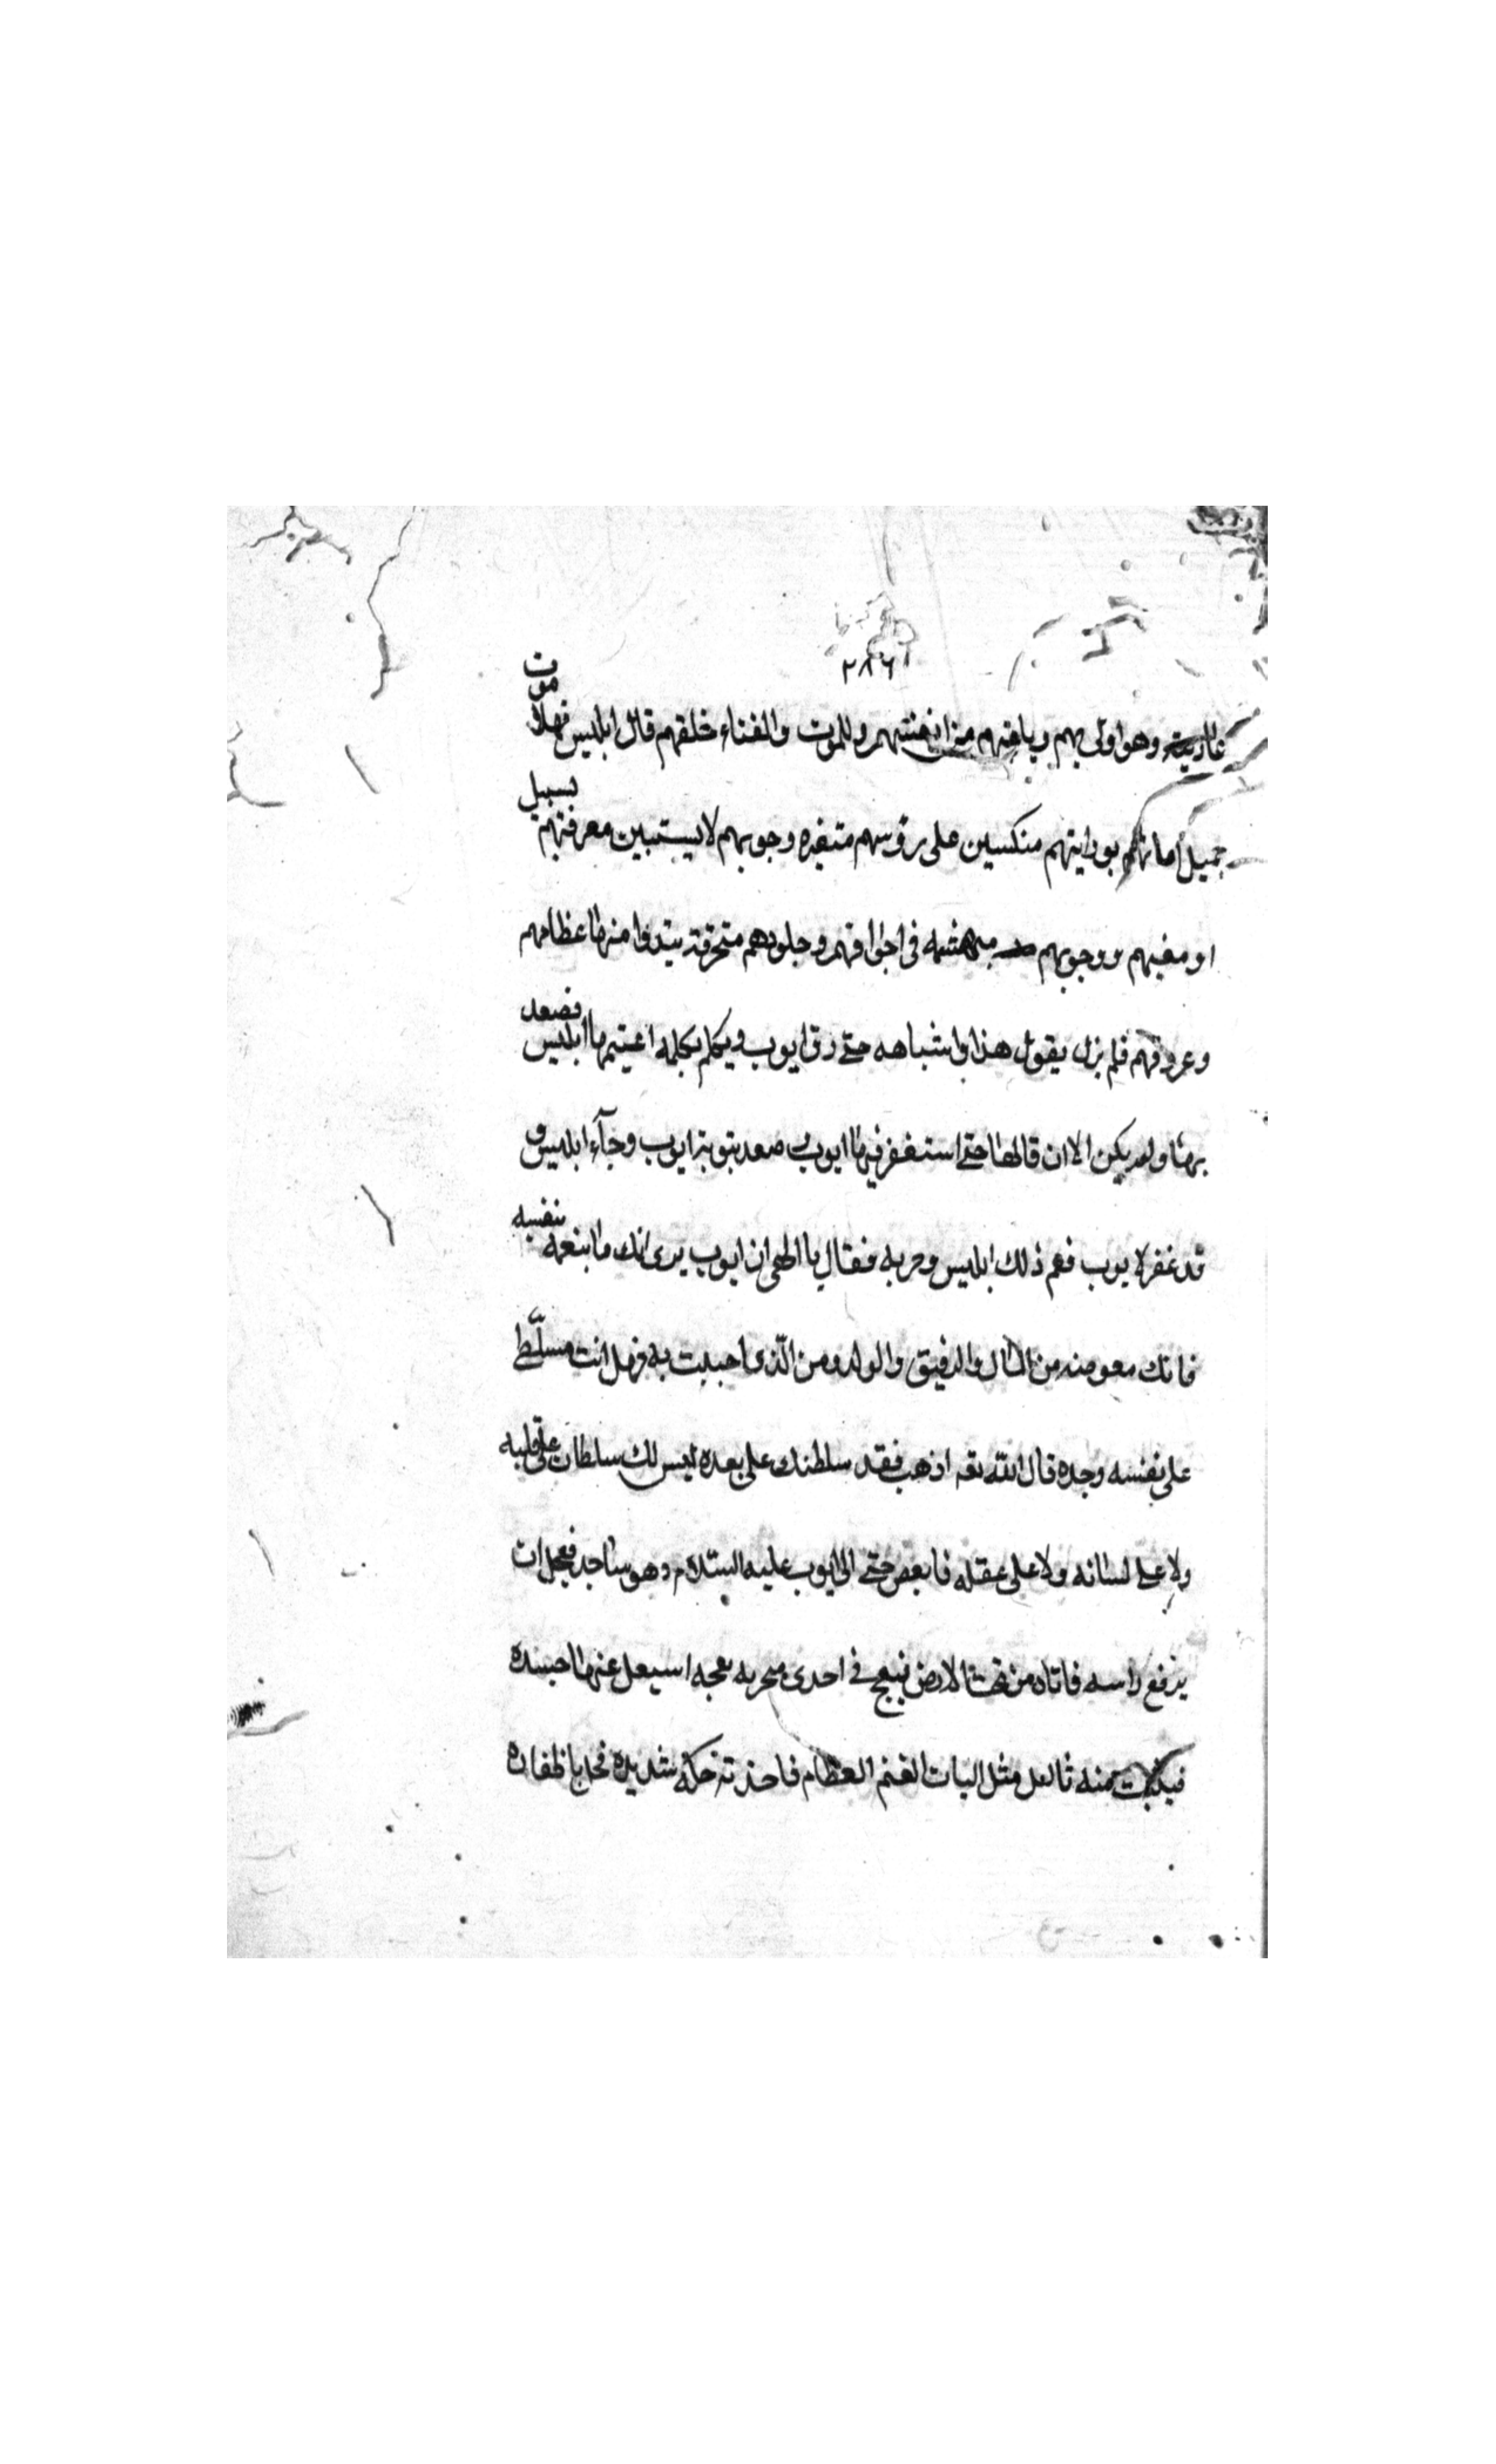 ٢٨٦
عاريته وهو اولى بهم وبامنهم من انفسهم وللموت والفناء خلقهم قال ابليس فهلا موت
جميل اماتهم بو رايتهم منكسين على رؤسهم متغيره وجوههم لا يستبين معرفتهم بسبيل
او مغبهم ووجوههم مهشمه فى اجوافهم وجلودهم متحرقة يتدوا منها عظامهم
وعروقهم فلم يزل يقول هذا واشباهه حتى رق ايوب ويكلم بكلمه اغتنمها ابليس فصعد
بها ولم يكن الا ان قالها حتى استغفر فيها ايوب صعد بتوبة ايوب وجآء ابليس و
قد غفر لايوب فغم ذلك ابليس وحربه فقال يا الهى ان ايوب يرى انك ما بنعمه بنفسه
فانك معوضه من المال والرقيق والولد ومن الذى احببت به فهل انت مسلّطى
على نفسه وجده قال الله تعه اذهب فقد سلطتك على بعده ليس لك سلطان على قلبه
ولا على لسانه ولا على عقله فانغض حتى الى ايوب عليه السلام وهو ساجد فعجل ان
يرفع راسه فاتاه من تحت الارض فنفخ فى احدى منخريه نفخه اسيعل عنها جسده
فيذبت منه ثالعل مثل اليات الغنم العظام فاخذته حكة شديده فحك باظفاره